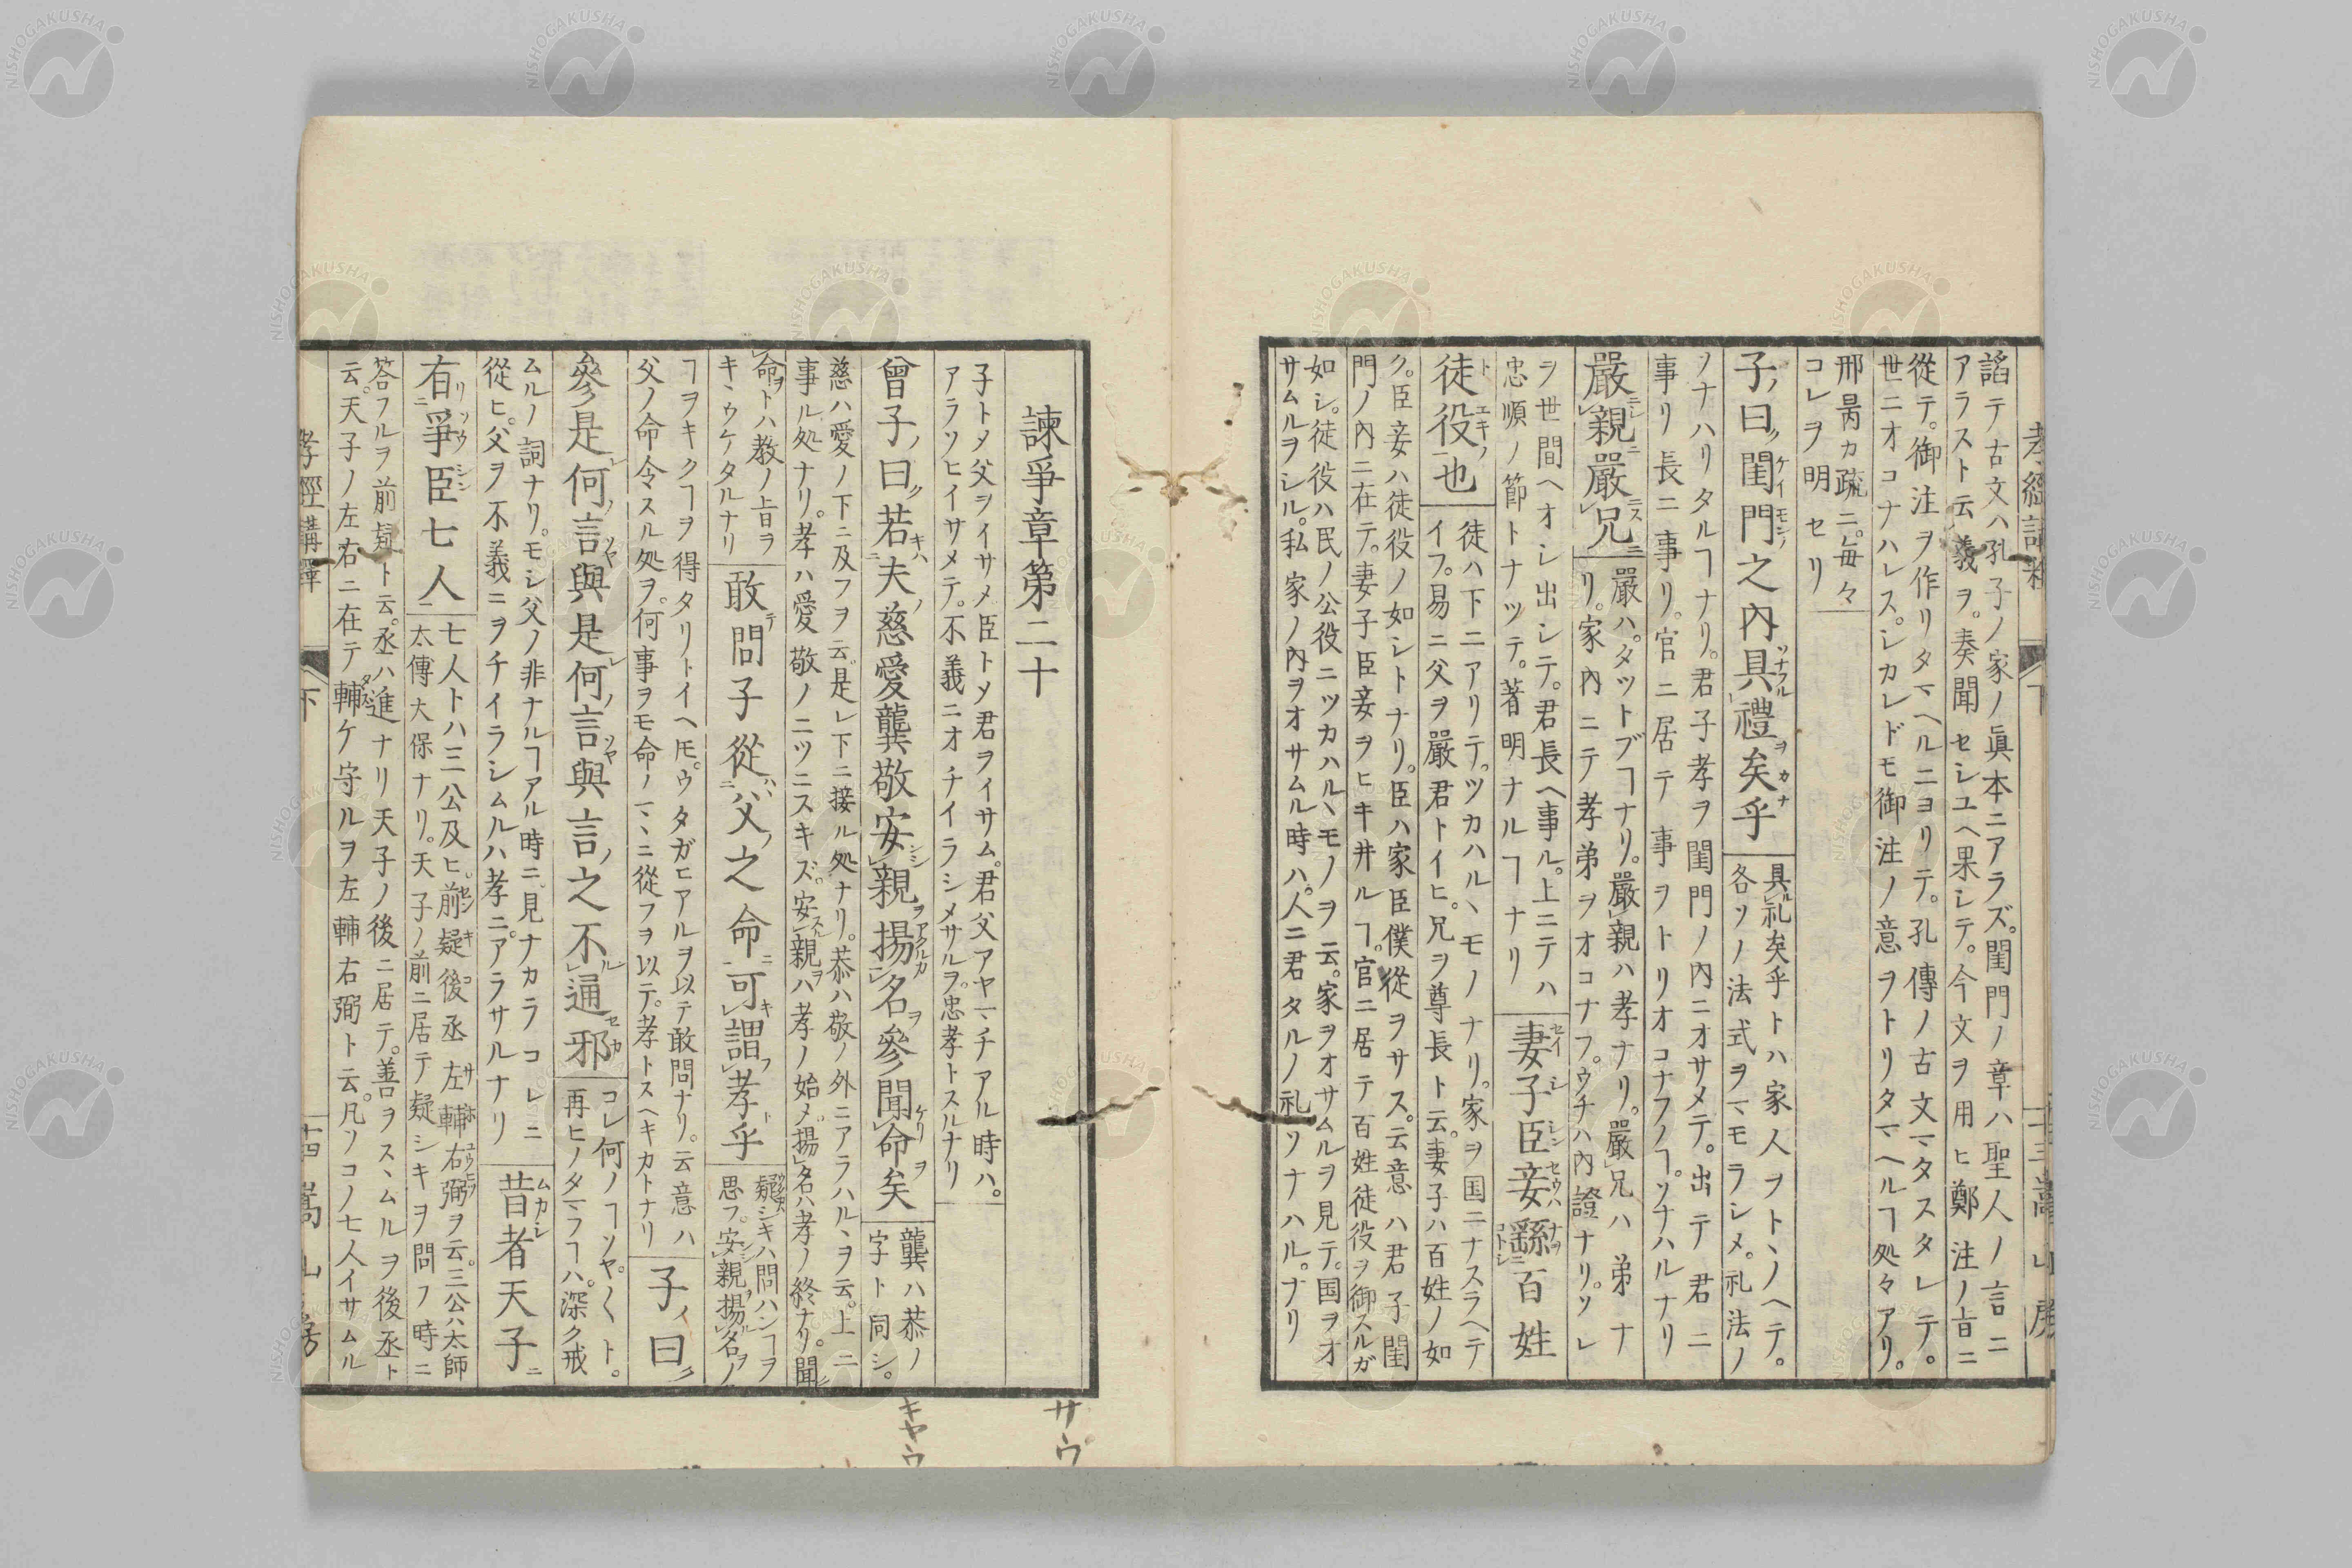 諂テ古文ハ孔子ノ家ノ眞本ニアラズ。閨門ノ章ハ聖人ノ言ニ
アラスト云義ヲ。奏聞セシユヘ果シテ。今文ヲ用ヒ鄭注ノ旨ニ
從テ。御注ヲ作リタマヘルニヨリテ。孔傳ノ古文マタスタレテ。
世ニオコナハレス。シカレドモ御注ノ意ヲトリタマヘルヿ処々アリ。
邢昺カ疏ニ。毎々
コレヲ明セリ
子ノ曰ク閨門之內具禮矣乎
具礼矣乎トハ家人ヲトヽノヘテ。
各ソノ法式ヲマモラシメ。礼法ノ
ソナハリタルヿナリ。君子孝ヲ閨門ノ內ニオサメテ。出テ君ニ
事リ長ニ事リ。官ニ居テ事ヲトリオコナフノヿ。ソナハルナリ
嚴親嚴兄
嚴ハ。タットブヿナリ。嚴親ハ孝ナリ。嚴兄ハ弟ナ
リ。家內ニテ孝弟ヲオコナフ。ウチハ內證ナリ。ソレ
ヲ世間ヘオシ出シテ。君長ヘ事ル。上ニテハ
忠順ノ節トナツテ。著明ナルヿナリ
妻子臣妾繇百姓
徒役也
徒ハ下ニアリテ。ツカハルヽモノナリ。家ヲ国ニナスラヘテ
イフ。易ニ父ヲ嚴君トイヒ。兄ヲ尊長ト云。妻子ハ百姓ノ如
ク。臣妾ハ徒役ノ如シトナリ。臣ハ家臣僕從ヲサス。云意ハ君子閨
門ノ內ニ在テ。妻子臣妾ヲヒキ井ルヿ。官ニ居テ百姓徒役ヲ御スルガ
如シ。徒役ハ民ノ公役ニツカハルヽモノヲ云。家ヲオサムルヲ見テ。国ヲオ
サムルヲシル。私家ノ內ヲオサムル時ハ。人ニ君タルノ礼ソナハル。ナリ
諫爭章第二十
子トメ父ヲイサメ臣トメ君ヲイサム。君父アヤマチアル時ハ。
アラソヒイサメテ。不義ニオチイラシメサルヲ。忠孝トスルナリ
曾子ノ曰ク若夫慈愛龔敬安親揚名參聞命矣
龔ハ恭ノ
字ト同シ。
慈ハ愛ノ下ニ及フヲ云。是レ下ニ接ル処ナリ。恭ハ敬ノ外ニアラハルヽヲ云。上ニ
事ル処ナリ。孝ハ愛敬ノ二ツニスキズ。安親ハ孝ノ始メ揚名ハ孝ノ終ナリ。聞
命ヲトハ教ノ旨ヲ
キヽウケタルナリ
敢問子從父之命可謂孝乎
疑シキハ問ハンヿヲ
思フ。安親揚名ノ
ヿヲキクヿヲ得タリトイヘ𪜈。ウタガヒアルヲ以テ敢問ナリ。云意ハ
父ノ命令スル処ヲ。何事ヲモ命ノマヽニ從フヲ以テ。孝トスヘキカトナリ
子ノ曰ク
參是何言與是何言與言之不通邪
コレ何ノヿソヤ〱ト。
再ヒノタマフヿハ。深ク戒
ムルノ詞ナリ。モシ父ノ非ナルヿアル時ニ。見ナカラコレニ
從ヒ。父ヲ不義ニヲチイラシムルハ孝ニ。アラサルナリ
昔者天子
有爭臣七人
七人トハ三公及ヒ。前疑後丞左輔右弼ヲ云。三公ハ太師
太傳大保ナリ。天子ノ前ニ居テ疑シキヲ問フ時ニ
答フルヲ前疑ト云。丞ハ進ナリ天子ノ後ニ居テ。善ヲスヽムルヲ後丞ト
云。天子ノ左右ニ在テ輔ケ守ルヲ左輔右弼ト云。凡ソコノ七人イサムル
孝經講釋 下 十四 嵩山房
サウ
キヤウ